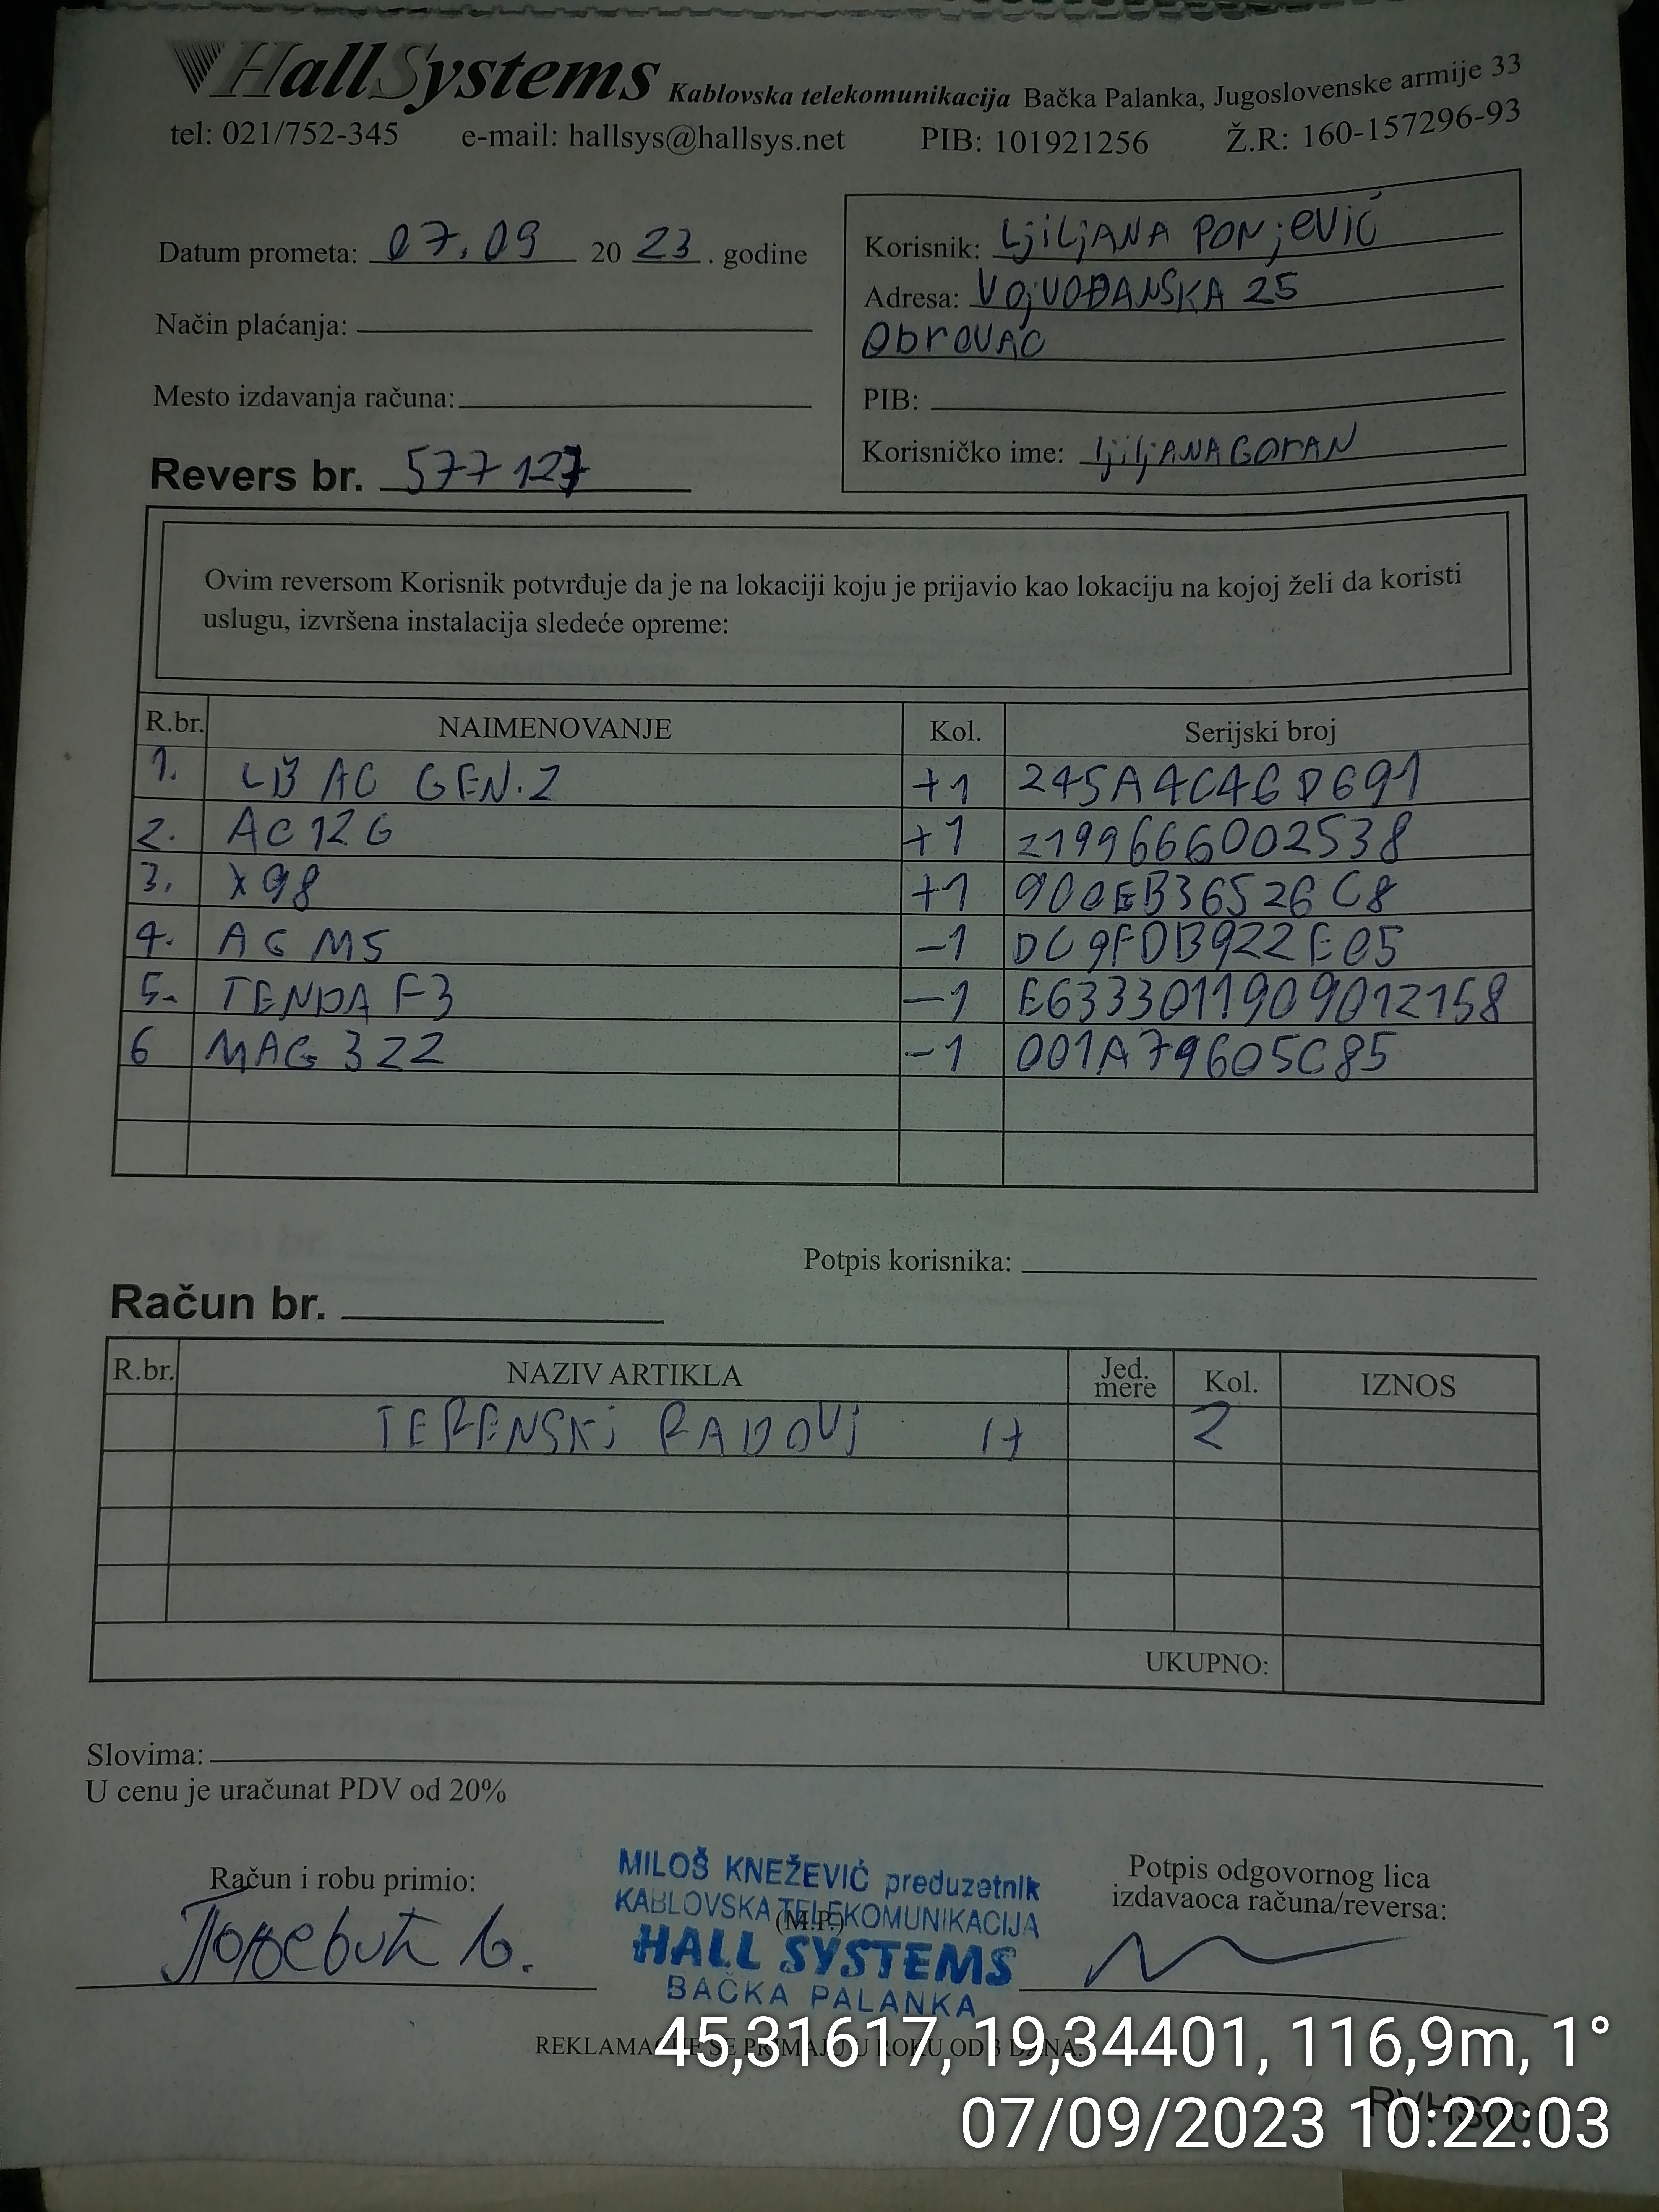 HallSystems Kablovska telekomunikacija Bačka Palanka, Jugoslovenske armije 33
tel: 021/752-345 e-mail: hallsys@hallsys.net PIB: 101921256 Ž.R: 160-157296-93
Datum prometa: 07.09 2023. godine
Način plaćanja:
Mesto izdavanja računa:
Revers br. 577127
Korisnik: LjiLjANA PONjEVIĆ
Adresa: VOjVOĐANSKA 25
ObrOVAC
PIB:
Korisničko ime: ljiljANAGOrAN
Ovim reversom Korisnik potvrđuje da je na lokaciji koju je prijavio kao lokaciju na kojoj želi da koristi
uslugu, izvršena instalacija sledeće opreme:
R.br. NAIMENOVANJE Kol. Serijski broj
1. LB AC GEN.2 +1 245A4C4GD691
2. AC12G +1 2199666002538
3. X98 +1 900EB36526C8
4. AG M5 -1 DC9FDB922E05
5. TENDA F3 -1 E6333011909012158
6 MAG 322 -1 001A79605C85
Potpis korisnika:
Račun br.
R.br. NAZIV ARTIKLA Jed. mere Kol. IZNOS
TERENSKI RADOVI 2
UKUPNO:
Slovima:
U cenu je uračunat PDV od 20%
Račun i robu primio:
MILOŠ KNEŽEVIĆ preduzetnik
KABLOVSKA TELEKOMUNIKACIJA
(M.P.)
HALL SYSTEMS
BAČKA PALANKA
Potpis odgovornog lica
izdavaoca računa/reversa:
REKLAMACIJE SE PRIMAJU U ROKU OD 3 DANA.
45,31617, 19,34401, 116,9m, 1°
07/09/2023 10:22:03